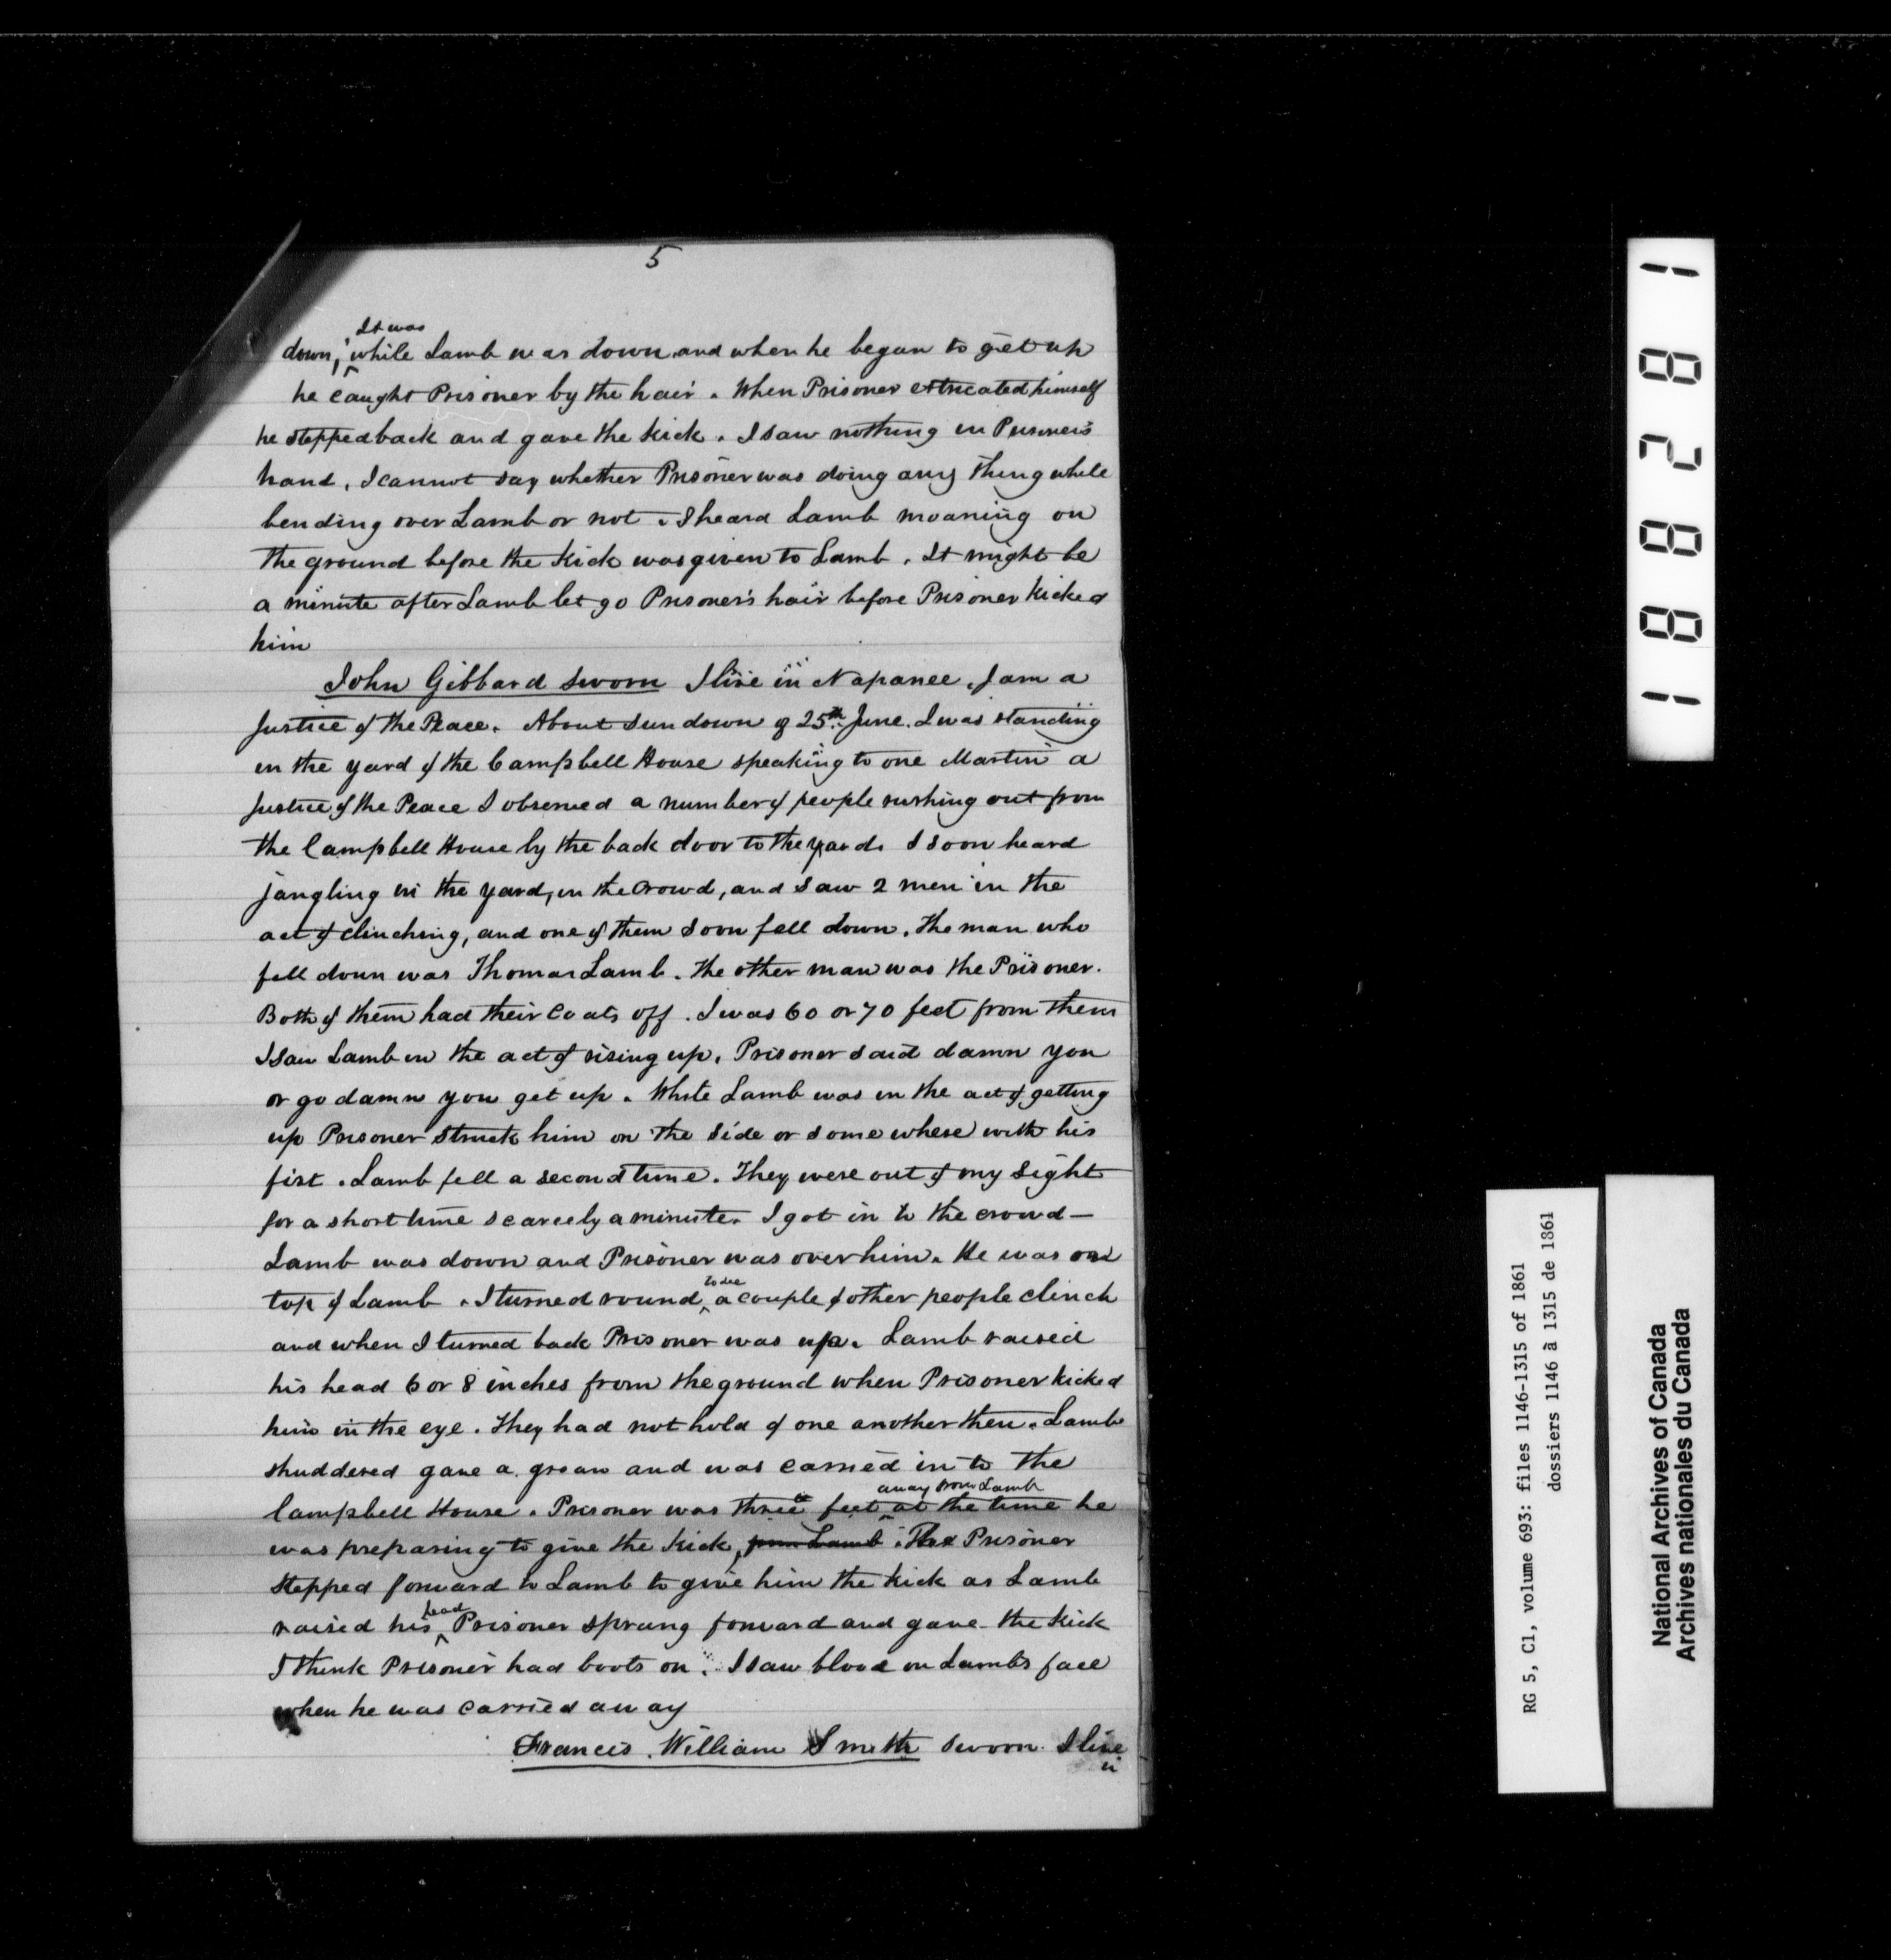 5
down, It was while Lamb was down and when he began to get up
he caught Prisoner by the hair. When Prisoner extricated himself
he stepped back and gave the Kick. I saw nothing in Prisoner's
hand, I cannot say whether Prisoner was doing any thing while
bending over Lamb or not. I heard Lamb moaning on
the ground before the Kick was given to Lamb. It might be
a minute after Lamb let go Prisoner's hair before Prisoner kicked
him
John Gibbard sworn I live in Napanee. I am a
Justice of the Peace. About sun down of 25th June. I was standing
in the yard of the Campbell House speaking to one Martin a
Justice of the Peace I observed a number of people rushing out from
the Campbell House by the back door to the yard. I soon heard
jangling in the yard, in the Crowd, and saw 2 men in the
act of clinching, and one of them soon fell down. The man who
fell down was Thomas Lamb. The other man was the Prisoner.
Both of them had their Coats off. I was 60 or 70 feet from them
I saw Lamb in the act of rising up. Prisoner said damn you
or go damn you get up. While Lamb was in the act of getting
up Prisoner struck him on the side or some where with his
fist. Lamb fell a second time. They were out of my sight
for a short time scarcely a minute. I got in to the crowd—
Lamb was down and Prisoner was over him. He was on
top of Lamb. I turned round to see a couple of other people clinch
and when I turned back Prisoner was up. Lamb raised
his head 6 or 8 inches from the ground when Prisoner kicked
him in the eye. They had not hold of one another then. Lamb
shuddered gave a groan and was carried in to the
Campbell House. Prisoner was three feet away from Lamb at the time he
was preparing to give the Kick, from Lamb. The Prisoner
stepped forward to Lamb to give him the kick as Lamb
raised his head Prisoner sprung forward and gave the Kick
I think Prisoner had boots on. I saw blood on Lambs face
when he was carried away
Francis William Smith sworn I live
in
18281
RG 5, C1, volume 693: files 1146-1315 of 1861
dossiers 1146 à 1315 de 1861
National Archives of Canada
Archives nationales du Canada